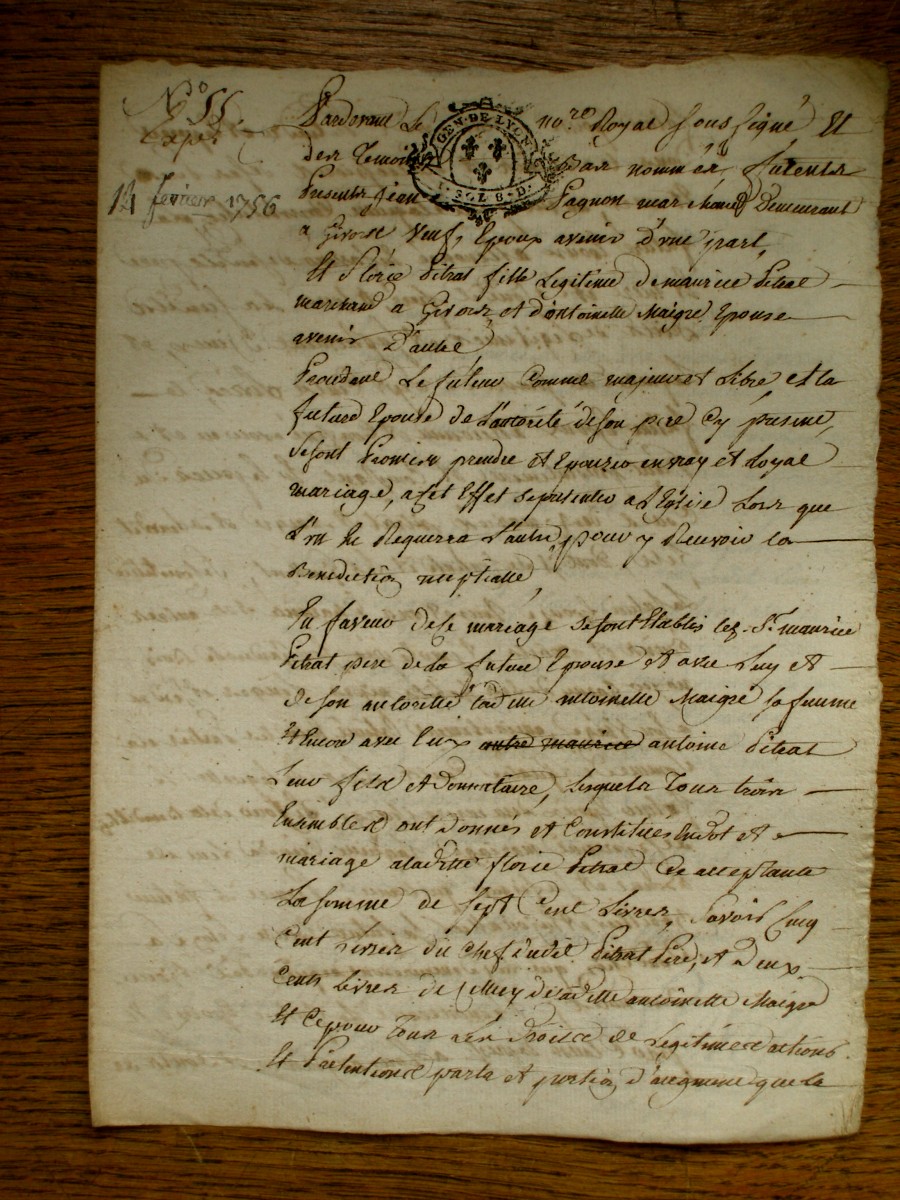 N° 55.
Expéé
14 février 1756
GEN. DE LYON
1. SOL 8. D.
Pardevant Le no.re Royal soussigné Et
des temoins bas nommés, furents
Presents Jean Pagnon marchand Demeurant
a Givors veuf, Epoux avenir D'une part,
Et Florie Pitrat fille Legitime de maurice Pitrat
marchand a Givors et d'antoinette Maigre Epouse
avenir D'autre
Procedant Le futeur comme majeur et libre et la
future Epouse de L'autorité de son pere cy present,
se sont Promis prendre et Epouser en vray et loyal
mariage, a cet Effet se presenter a L'Eglise Lors que
L'un en Requerra L'autre pour y Recevoir la
Benediction nuptialle,
En faveur de ce mariage se sont Etablis led. Sr. maurice
Pitrat pere de la future Epouse Et avec Luy et
de son autorité laditte antoinette Maigre sa femme
Et Encore avec Eux autre maurice antoine Pitrat
Leur fils et donnataire, lesquels tous trois
Ensembles ont donnés et Constitués En dot et
mariage a laditte florie Pitrat Ce acceptante
La somme de Sept Cent Livres, Savoir Cinq
Cent Livres du Chef dudit Pitrat Pere, et Deux
Cents Livres de Celluy de laditte antoinette Maigre
Et Ce pour tous ses Droits de Legitimes actions
Et Pretentions parts et portion d'augment que le